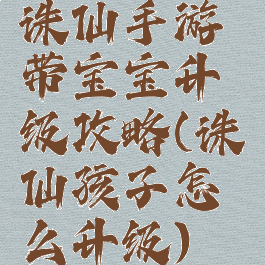 诛仙手游
带宝宝升
级攻略(诛
仙孩子怎
么升级)